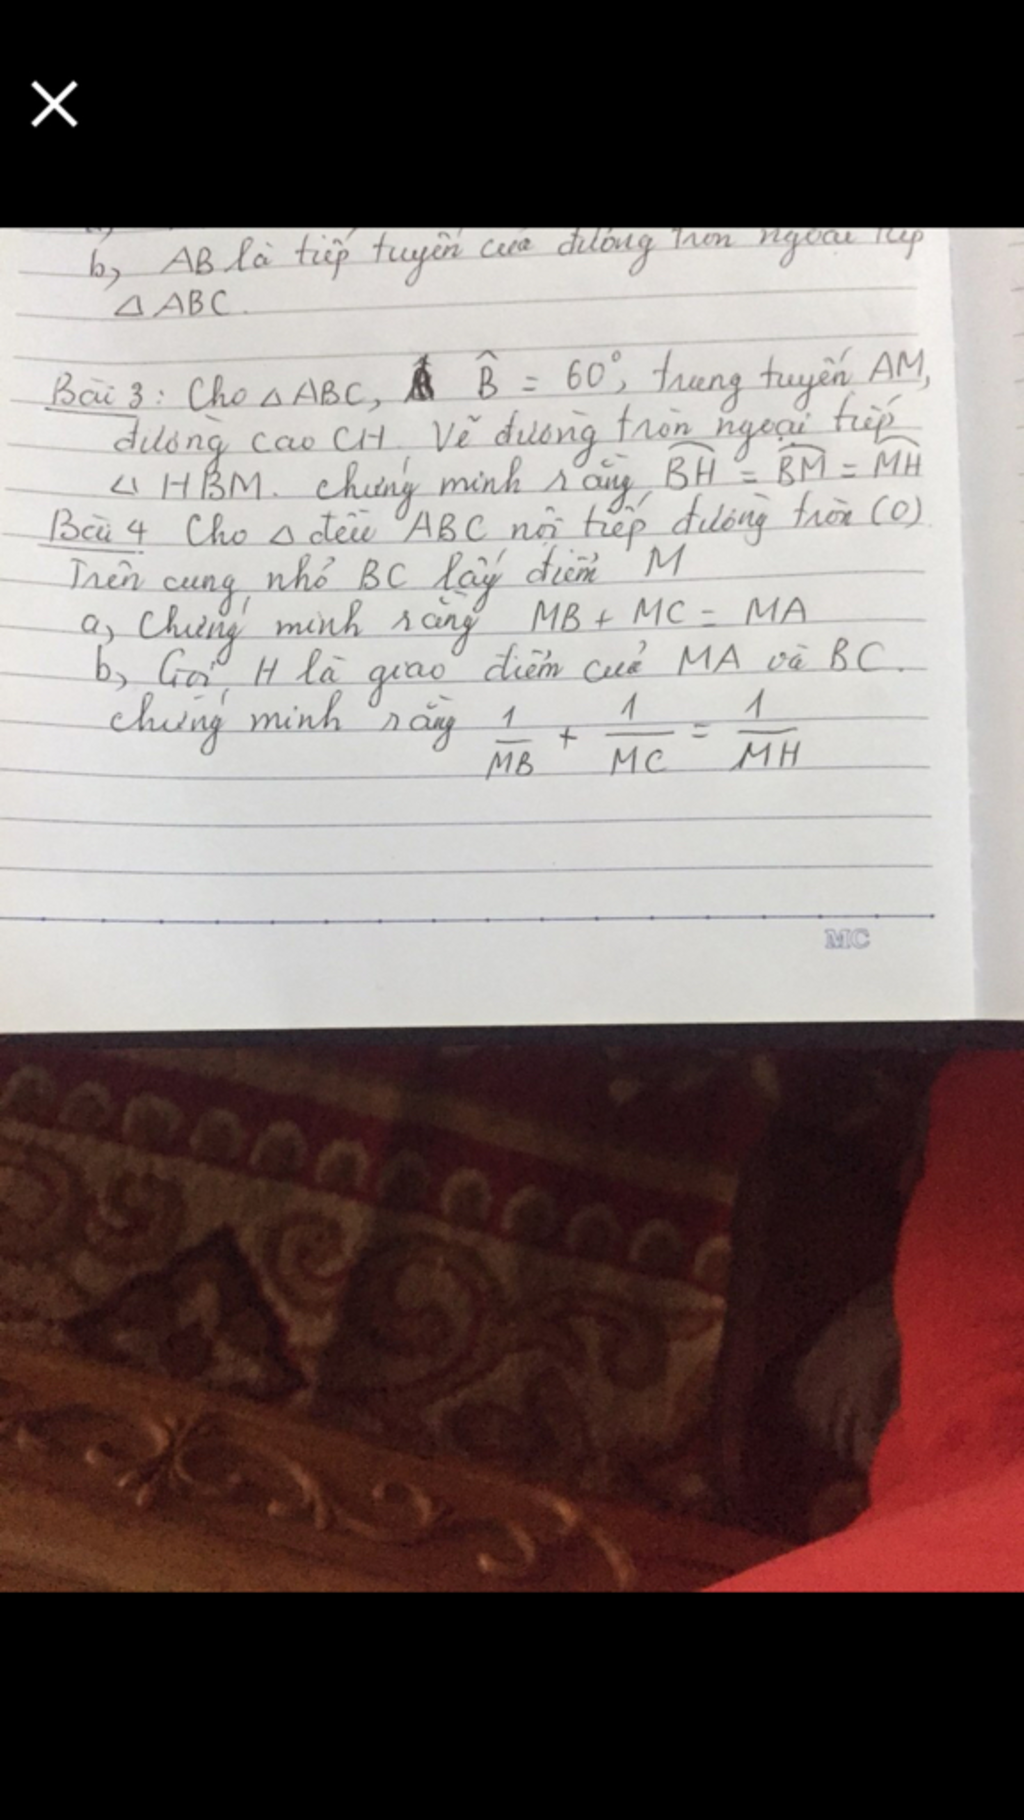 b, AB là tiếp tuyến của đường tròn ngoại tiếp
△ ABC.
Bài 3: Cho △ABC, B̂ = 60°, trung tuyến AM,
đường cao CH. Vẽ đường tròn ngoại tiếp
△ HBM. chứng minh rằng BH = BM = MH
Bài 4 Cho △ đều ABC nội tiếp đường tròn (O)
Trên cung nhỏ BC lấy điểm M
a, Chứng minh rằng MB + MC = MA
b, Gọi H là giao điểm của MA và BC.
chứng minh rằng 1/MB + 1/MC = 1/MH
MC